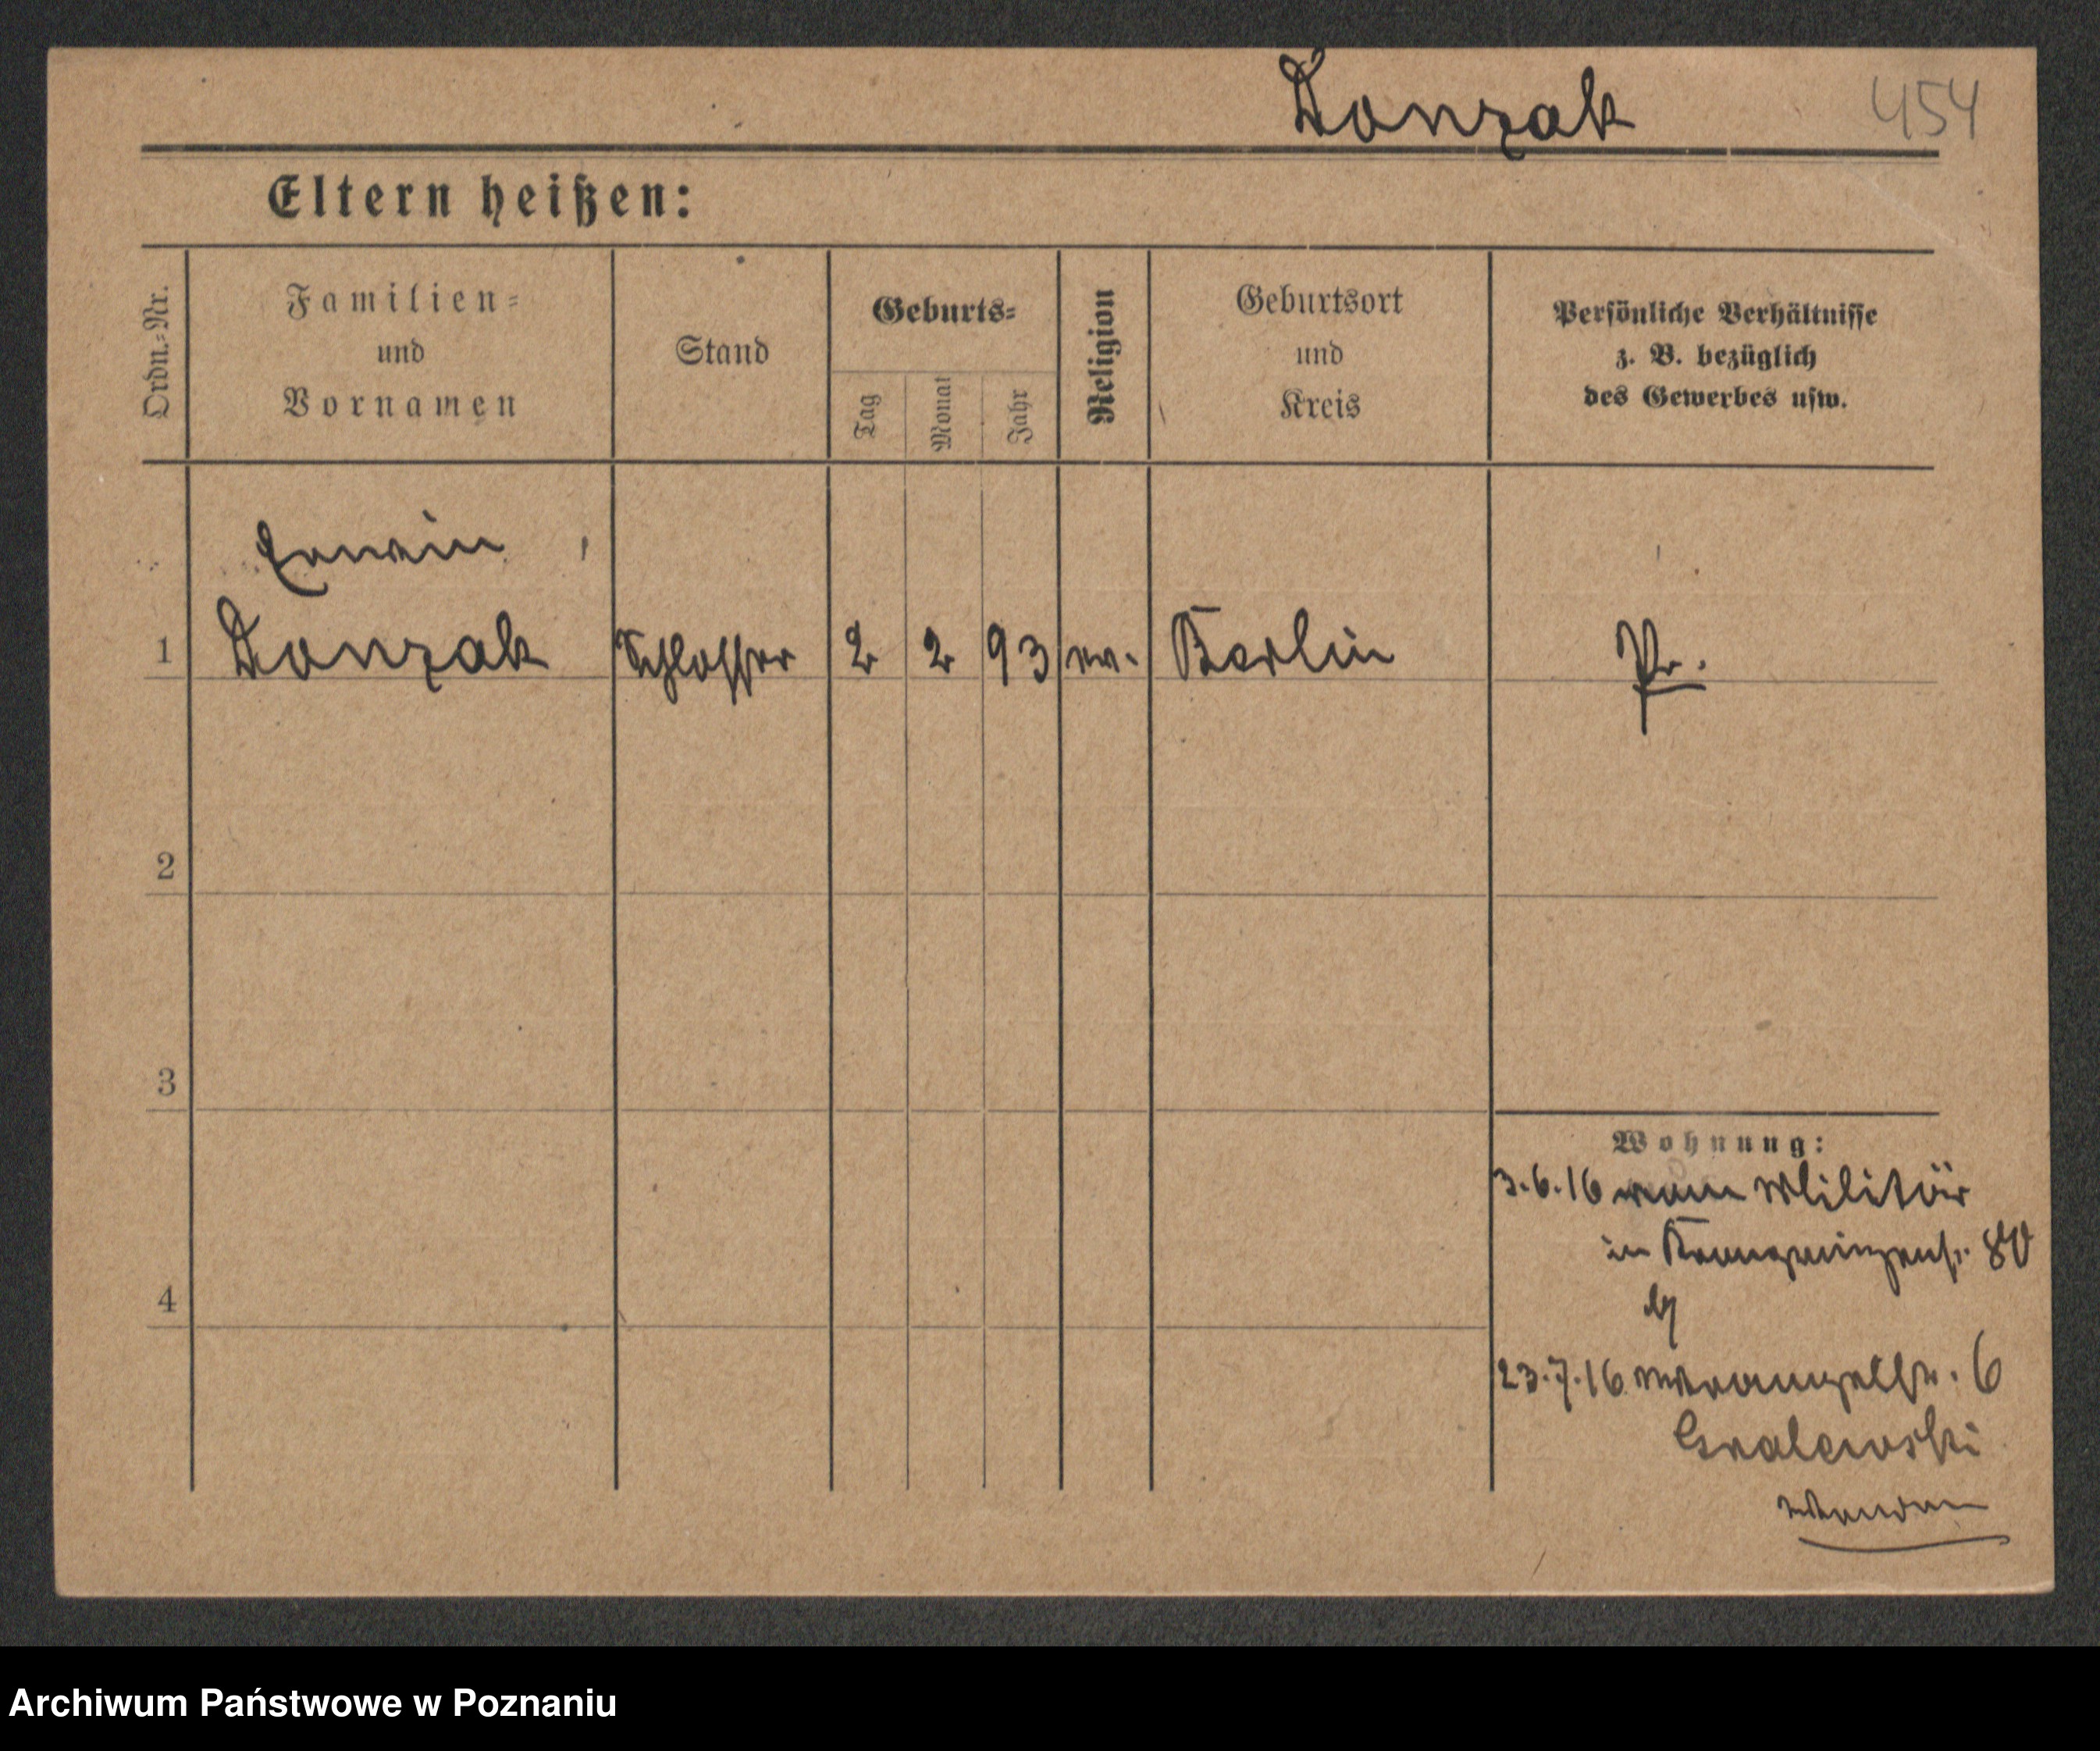 Donzak 454
Eltern heißen:
Ordn.-Nr.
Familien-
und
Vornamen
Stand
Geburts-
Tag
Monat
Jahr
Religion
Geburtsort
und
Kreis
Persönliche Verhältnisse
z. B. bezüglich
des Gewerbes usw.
Erwin
1 Donzak Schlosser 2 2 93 ev. Berlin Pr.
2
3
4
Wohnung:
3.6.16 vom Militär
in Kronprinzenstr. 80
23.7.16 Wrangelstr. 6
Gralewski
wenden
Archiwum Państwowe w Poznaniu